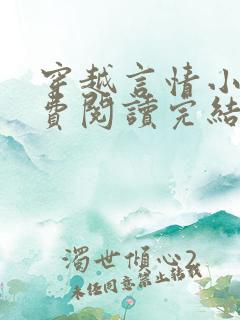 穿越言情小
費閱讀完結
濁世傾心2
未經同意禁止轉載